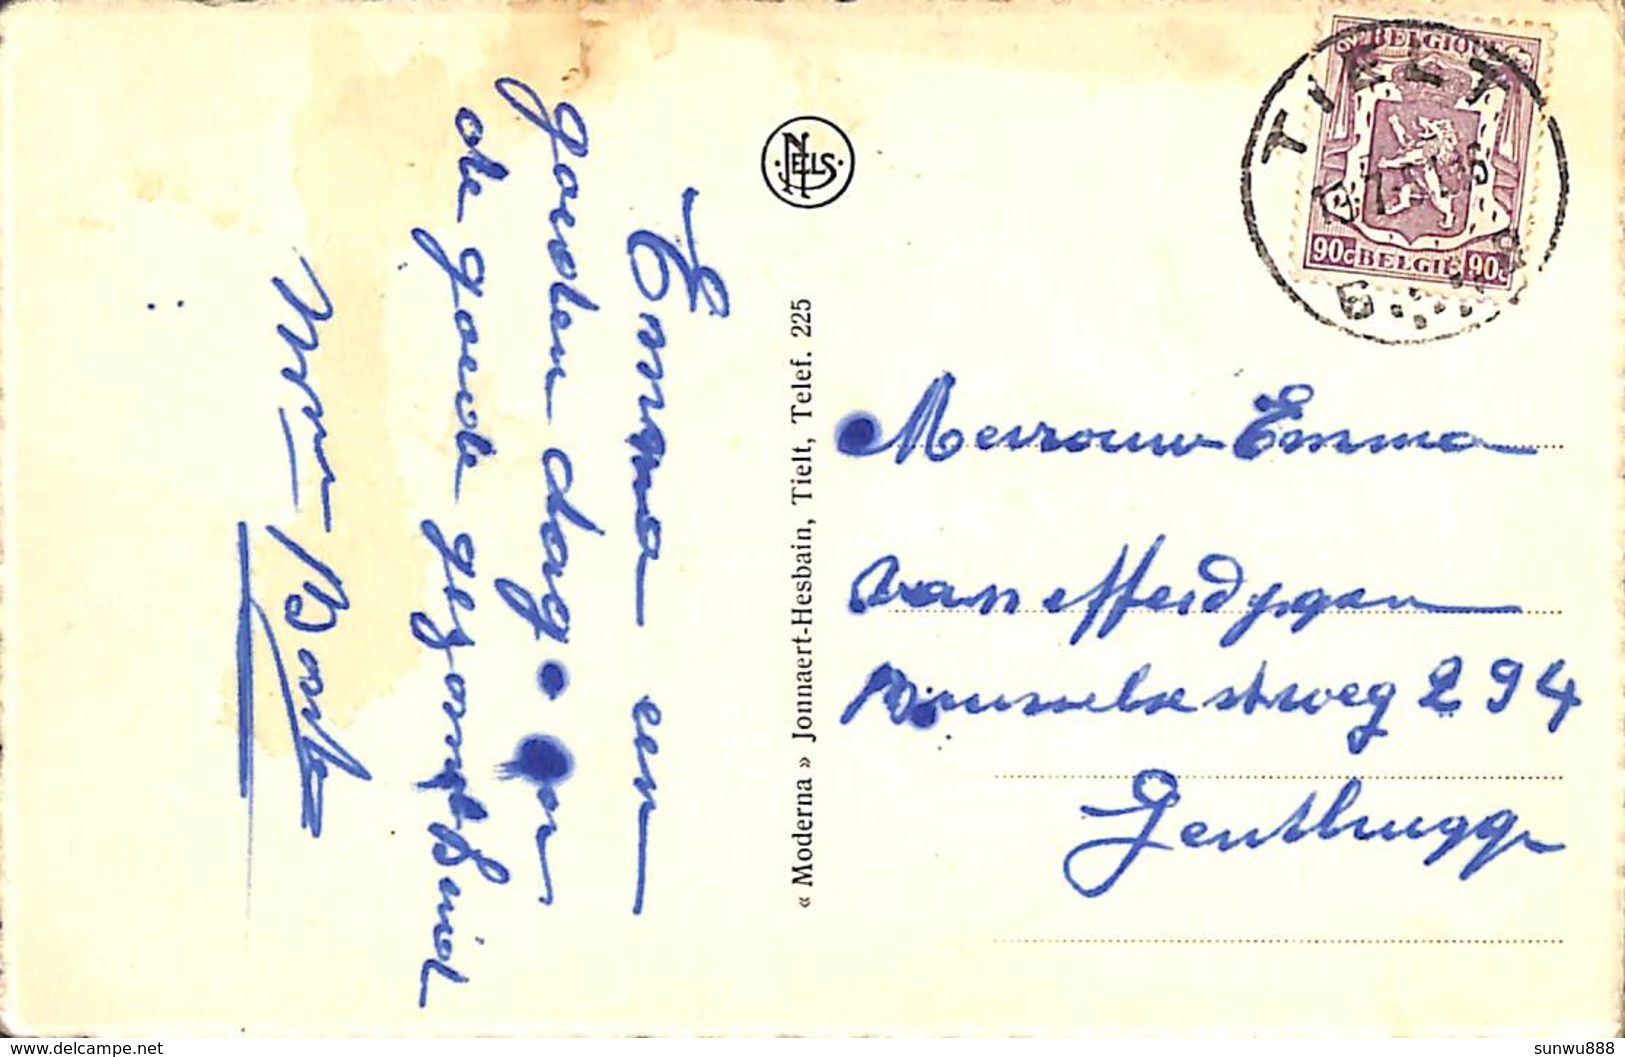 Emma een
goeden dag on
de goede gezontheid
NELS
« Moderna » Jonnaert-Hesbain, Tielt, Telef. 225
BELGIQUE
90c BELGIË 90c
TIELT
Mevrouw Emma
van
Brusselsestweg 294
Gentbrugge
www.delcampe.net
sunwu888